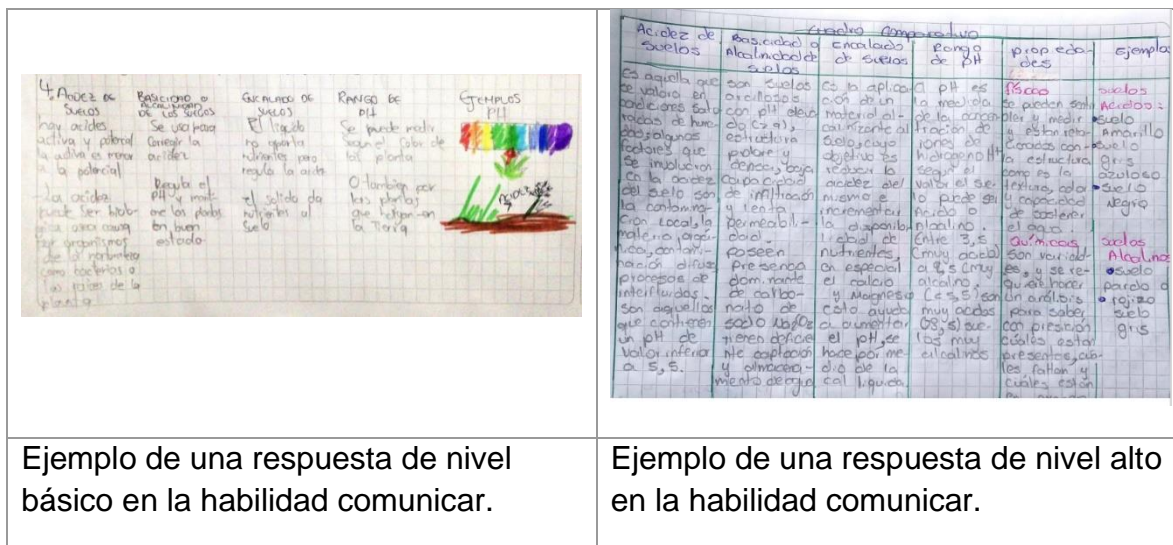 4. Acidez de Suelos
hay acides
activa y potencial
la activa es menor
a la potencial
- la acides
puede ser biolo-
gica
por organismos
de la naturaleza
como bacterias o
las raices de la
planta
BASICIDAD o
ALCALINIDAD
DE LOS SUELOS
Se usa para
Corregir la
acidez
Regula el
PH y mant-
ene las plantas
en buen
estado
ENCALADO DE
SUELOS
El liquido
no aporta
nutrientes pero
regula la acides
el solido da
nutrientes al
suelo
RANGO DE
PH
Se puede medir
segun el color de
la planta
O tambien por
las plantas
que hayan en
la tierra
EJEMPLOS
PH
Cuadro Comparativo
Acidez de
Suelos
Es aquella que
se valora en
condiciones satu-
radas de hume-
dad, algunos
factores que
se involucran
en la acidez
del suelo son
la contamina-
ción local, la
materia orgáni-
ca, contami-
nación difusa
procesos de
interfluidos.
son aquellos
que contienen
un pH de
valor inferior
a 5,5.
Basicidad o
Alcalinidad de
suelos
son suelos
arcillosos
con pH eleva-
do
estructura
pobre y
densa, baja
capacidad
de infiltración
y lenta
permeabili-
dad.
poseen
presencia
dominante
de carbo-
nato de
sodio
tienen deficie-
nte captación
y almacena-
miento de agua
encalado
de suelos
Es la aplica-
ción de un
material al-
calinizante al
suelo, cuyo
objetivo es
reducir la
acidez del
mismo e
incrementar
la disponibi-
lidad de
nutrientes,
en especial
el calcio
y Magnesio
esto ayuda
a aumentar
el pH, se
hace por me-
dio de la
cal liquida.
Rango
de pH
a pH es
la medida
de la concen-
tración de
iones de
hidrogeno H+
según el
valor el sue-
lo puede ser
Acido o
Alcalino.
Entre 3,5
(muy acido)
a 9,5 (muy
alcalino)
(<5,5) son
muy acidos
(>8,5) sue-
los muy
alcalinos
propieda-
des
físicas
se pueden
y medir
y estan rela-
cionados con
la estructura
como es la
textura, color
y capacidad
de sostener
el agua.
Químicas
son variabl-
es, y se re-
quiere hacer
un análisis
para saber
con presición
cuáles están
presentes, cuá-
les faltan y
cuáles están
Ejemplo
suelos
Acidos:
suelo
Amarillo
suelo
gris
azuloso
suelo
Negro
suelos
Alcalinos
suelo
pardo o
rojizo
suelo
gris
Ejemplo de una respuesta de nivel
básico en la habilidad comunicar.
Ejemplo de una respuesta de nivel alto
en la habilidad comunicar.